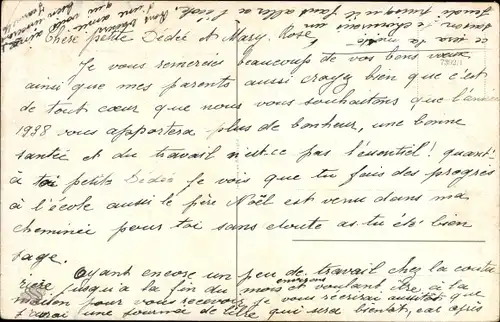 Chère petite Dédée et Mary-Rose
Je vous remercies beaucoup de vos bons vœux
ainsi que mes parents aussi croyez bien que c'est
de tout cœur que nous vous souhaitons que l'année
1938 vous apportera plus de bonheur, une bonne
santée et du travail n'est-ce pas l'éssentiel! quant
à toi petite Dédée Je vois que tu fais des progrès
à l'école aussi le père Noël est venu dans ma
cheminée pour toi sans doute as-tu été bien
sage.
Ayant encore un peu de travail chez la coutu
rière jusqu'à la fin du mois environ et voulant être à la
maison pour vous recevoir je vous recrirai aussitot que
j'aurai une journée de libre qui sera bientôt, car après